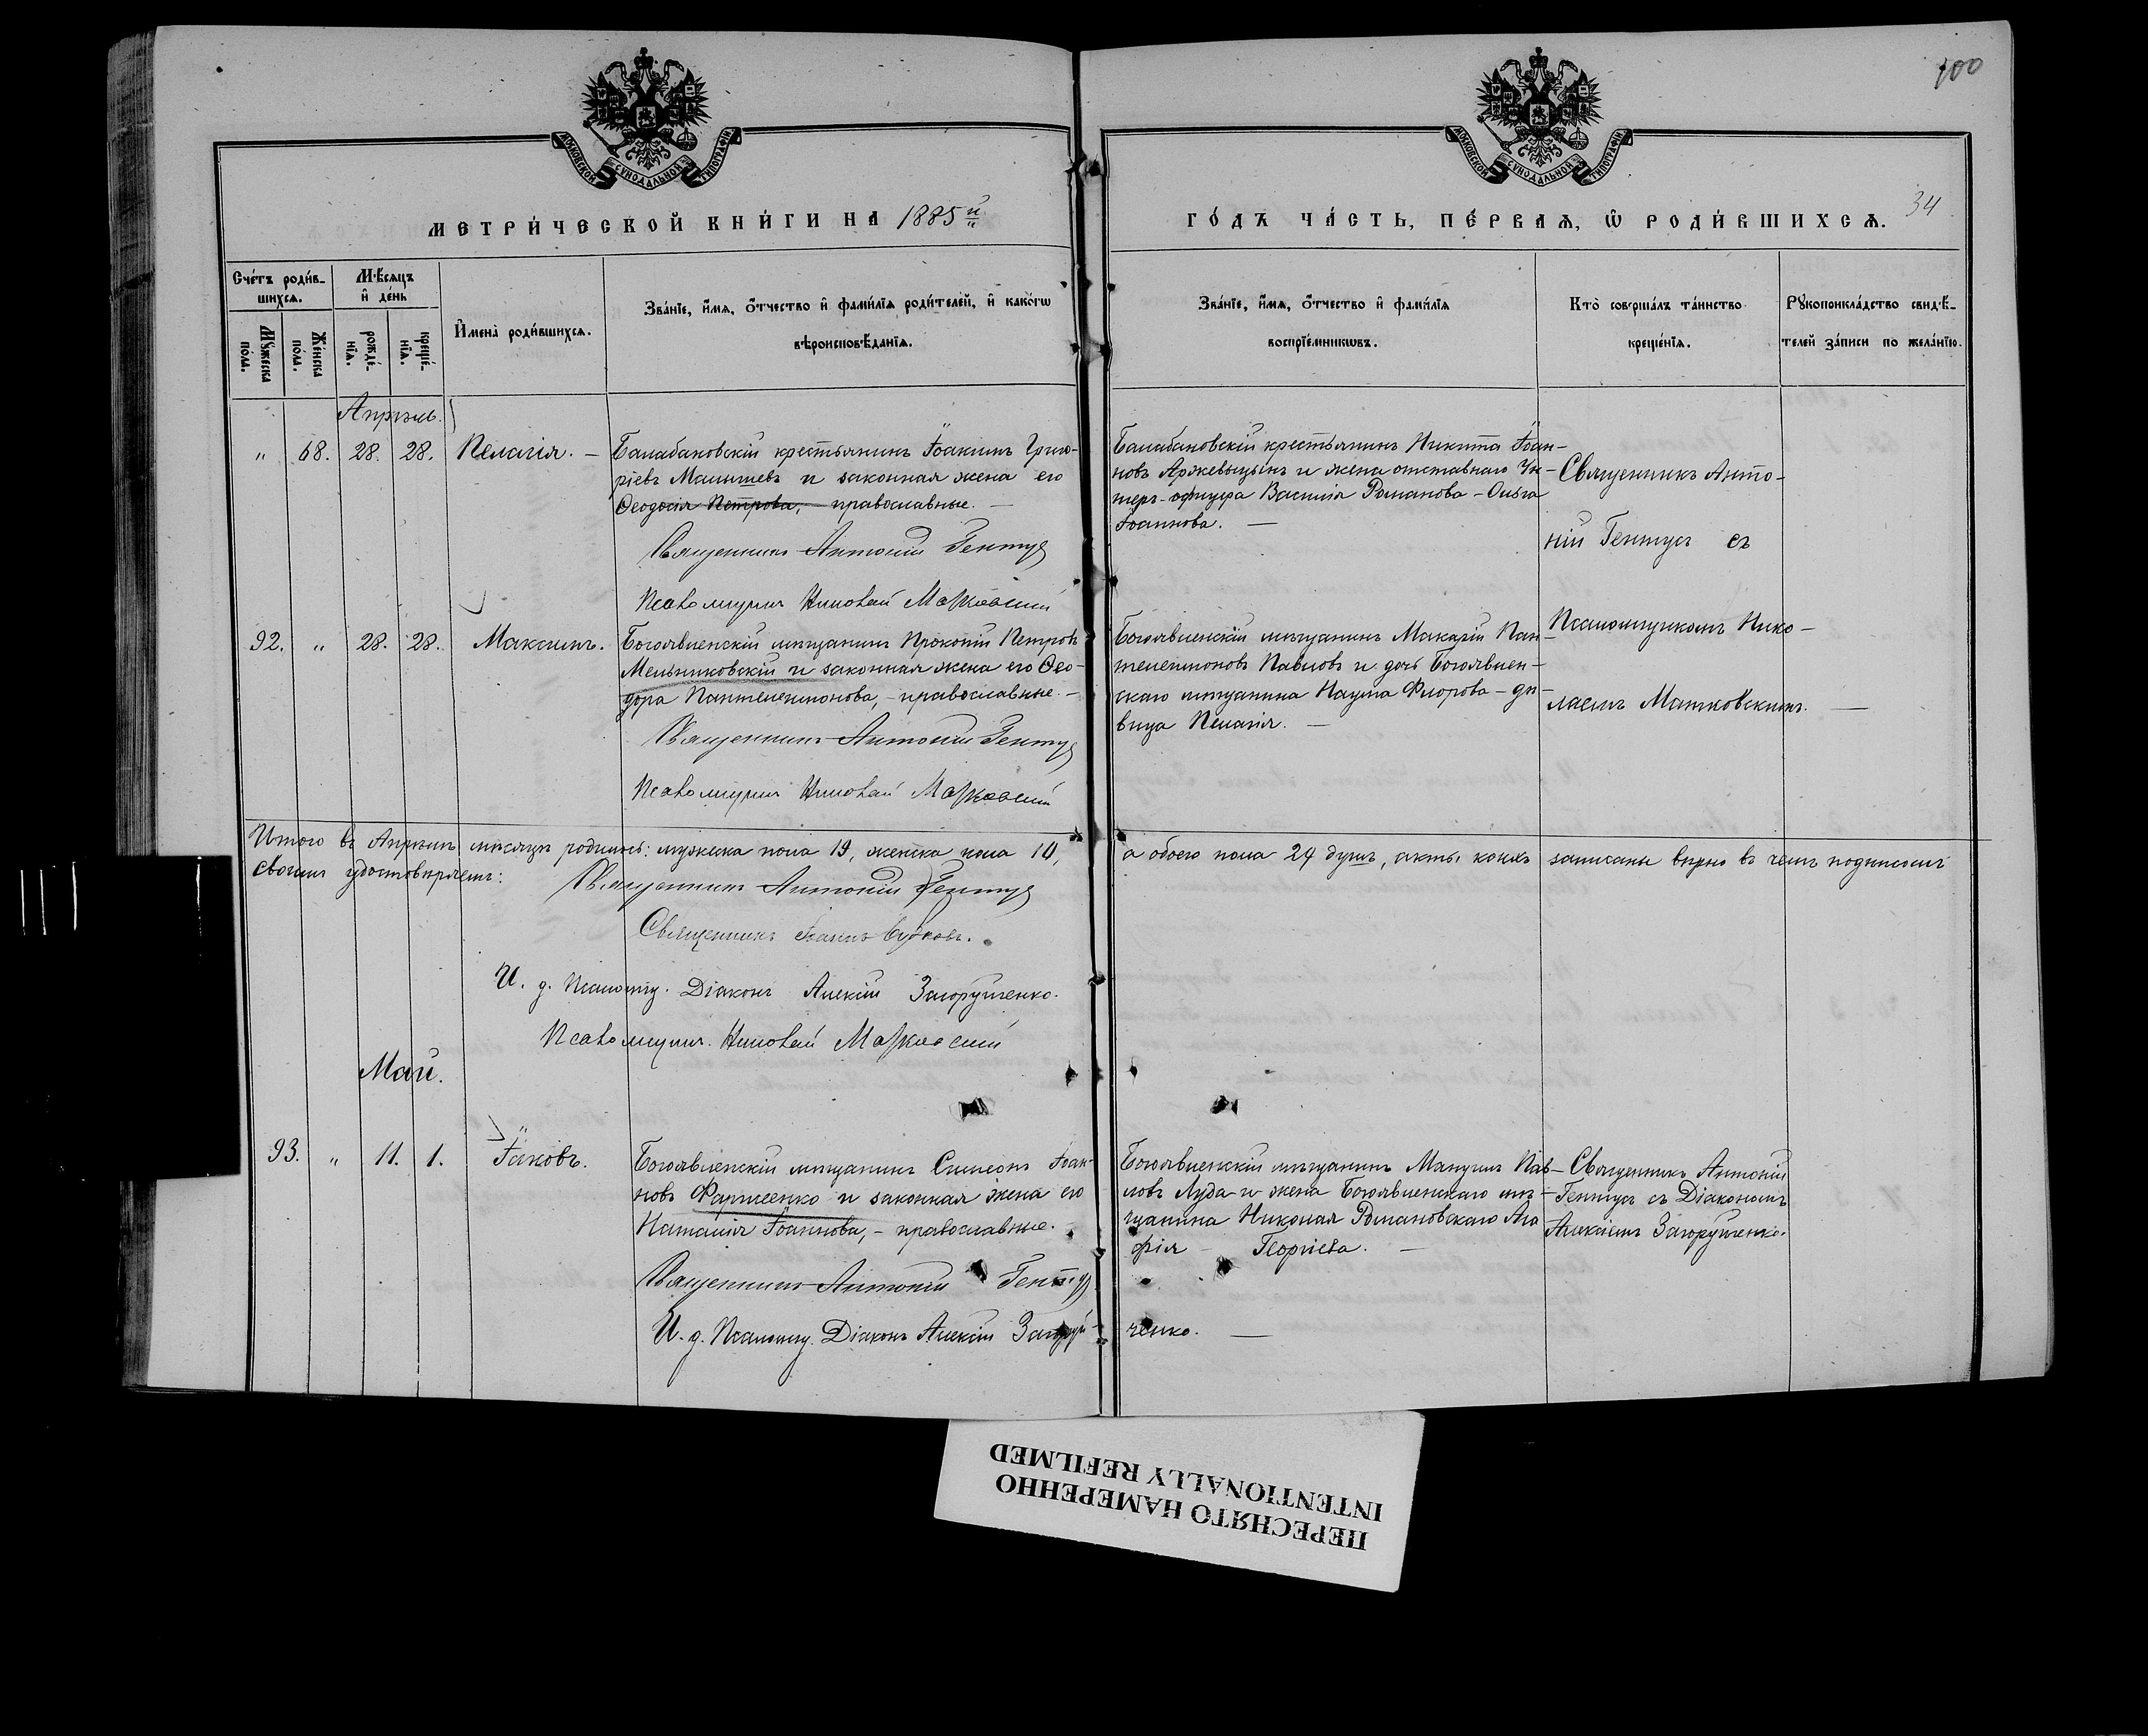 100
МОСКОВСКОЙ СѴНОДАЛЬНОЙ ТИПОГРАФІИ
МОСКОВСКОЙ СѴНОДАЛЬНОЙ ТИПОГРАФІИ
МЕТРИ́ЧЕСКОЙ КНИ́ГИ НА 1885й
ГО́ДЪ ЧА́СТЬ, ПЕ́РВАЯ, Ѡ РОДИ́ВШИХСЯ.
34
Сче́тъ роди́в-
шихся.
Мѣсяцъ
и день
Мꙋжеска
по́ла.
Же́нска
по́ла.
рожде́-
нїя.
креще́-
нїя.
И҆мена̀ роди́вшихся.
Зва́нїе, и҆́мя, ѻ҆́тчество и҆ фами́лїя роди́телей, и҆ како́гѡ
вѣроисповѣ́данїя.
Зва́нїе, и҆́мя, ѻ҆́тчество и҆ фами́лїя
воспрїе́мникѡвъ.
Кто̀ соверша́лъ та́инство
креще́нїя.
Рꙋкоприкла́дство свидѣ́-
телей за́писи по жела́нїю.
Апрѣль.
" 68. 28. 28. Пелагія. —
Балабановскій крестьянинъ Іоакимъ Григо-
ріевъ Малышевъ и законная жена его
Ѳеодосія Петрова, — православные. —
Священникъ Антоній Гентуз
Псаломщикъ Николай
Балабановскій крестьянинъ Никита Іоан-
новъ и жена отставнаго Ун-
теръ-офицера Василія Романова — Ольга
Іоаннова. —
Священникъ Анто-
ній Гентузъ съ
Псаломщикомъ Нико-
лаемъ —
92. " 28. 28. Максимъ.
Богоявленскій мѣщанинъ Прокопій Петровъ
Мельниковскій и законная жена его Ѳео-
дора Пантелеимонова, — православные. —
Священникъ Антоній Гентуз
Псаломщикъ Николай
Богоявленскій мѣщанинъ Макарій Пан-
телеимоновъ Павловъ и дочь Богоявлен-
скаго мѣщанина Наума Фролова — дѣ-
вица Пелагія. —
Итого въ Апрѣлѣ мѣсяцѣ родилось: мужеска пола 14, женска пола 10,
а обоего пола 24 душъ, акты коихъ записаны вѣрно въ чемъ подписомъ
своимъ удостовѣряемъ:
Священникъ Антоній Гентуз
Священникъ Іоаннъ
И. д. Псаломщ. Діаконъ Алексій Загоруйченко.
Псаломщикъ Николай
Май.
93. " 11. 1. Іаковъ.
Богоявленскій мѣщанинъ Симеонъ Іоан-
новъ и законная жена его
Наталія Іоаннова, — православные.
Священникъ Антоній Гентуз
И. д. Псаломщ. Діаконъ Алексій Загоруй-
ченко. —
Богоявленскій мѣщанинъ Мануилъ Пав-
ловъ Луда и жена Богоявленскаго мѣ-
щанина Николая Романовскаго Ага-
фія — Георгіева. —
Священникъ Антоній
Гентузъ съ Діакономъ
Алексіемъ Загоруйченко.
ПЕРЕСНЯТО НАМЕРЕННО
INTENTIONALLY REFILMED